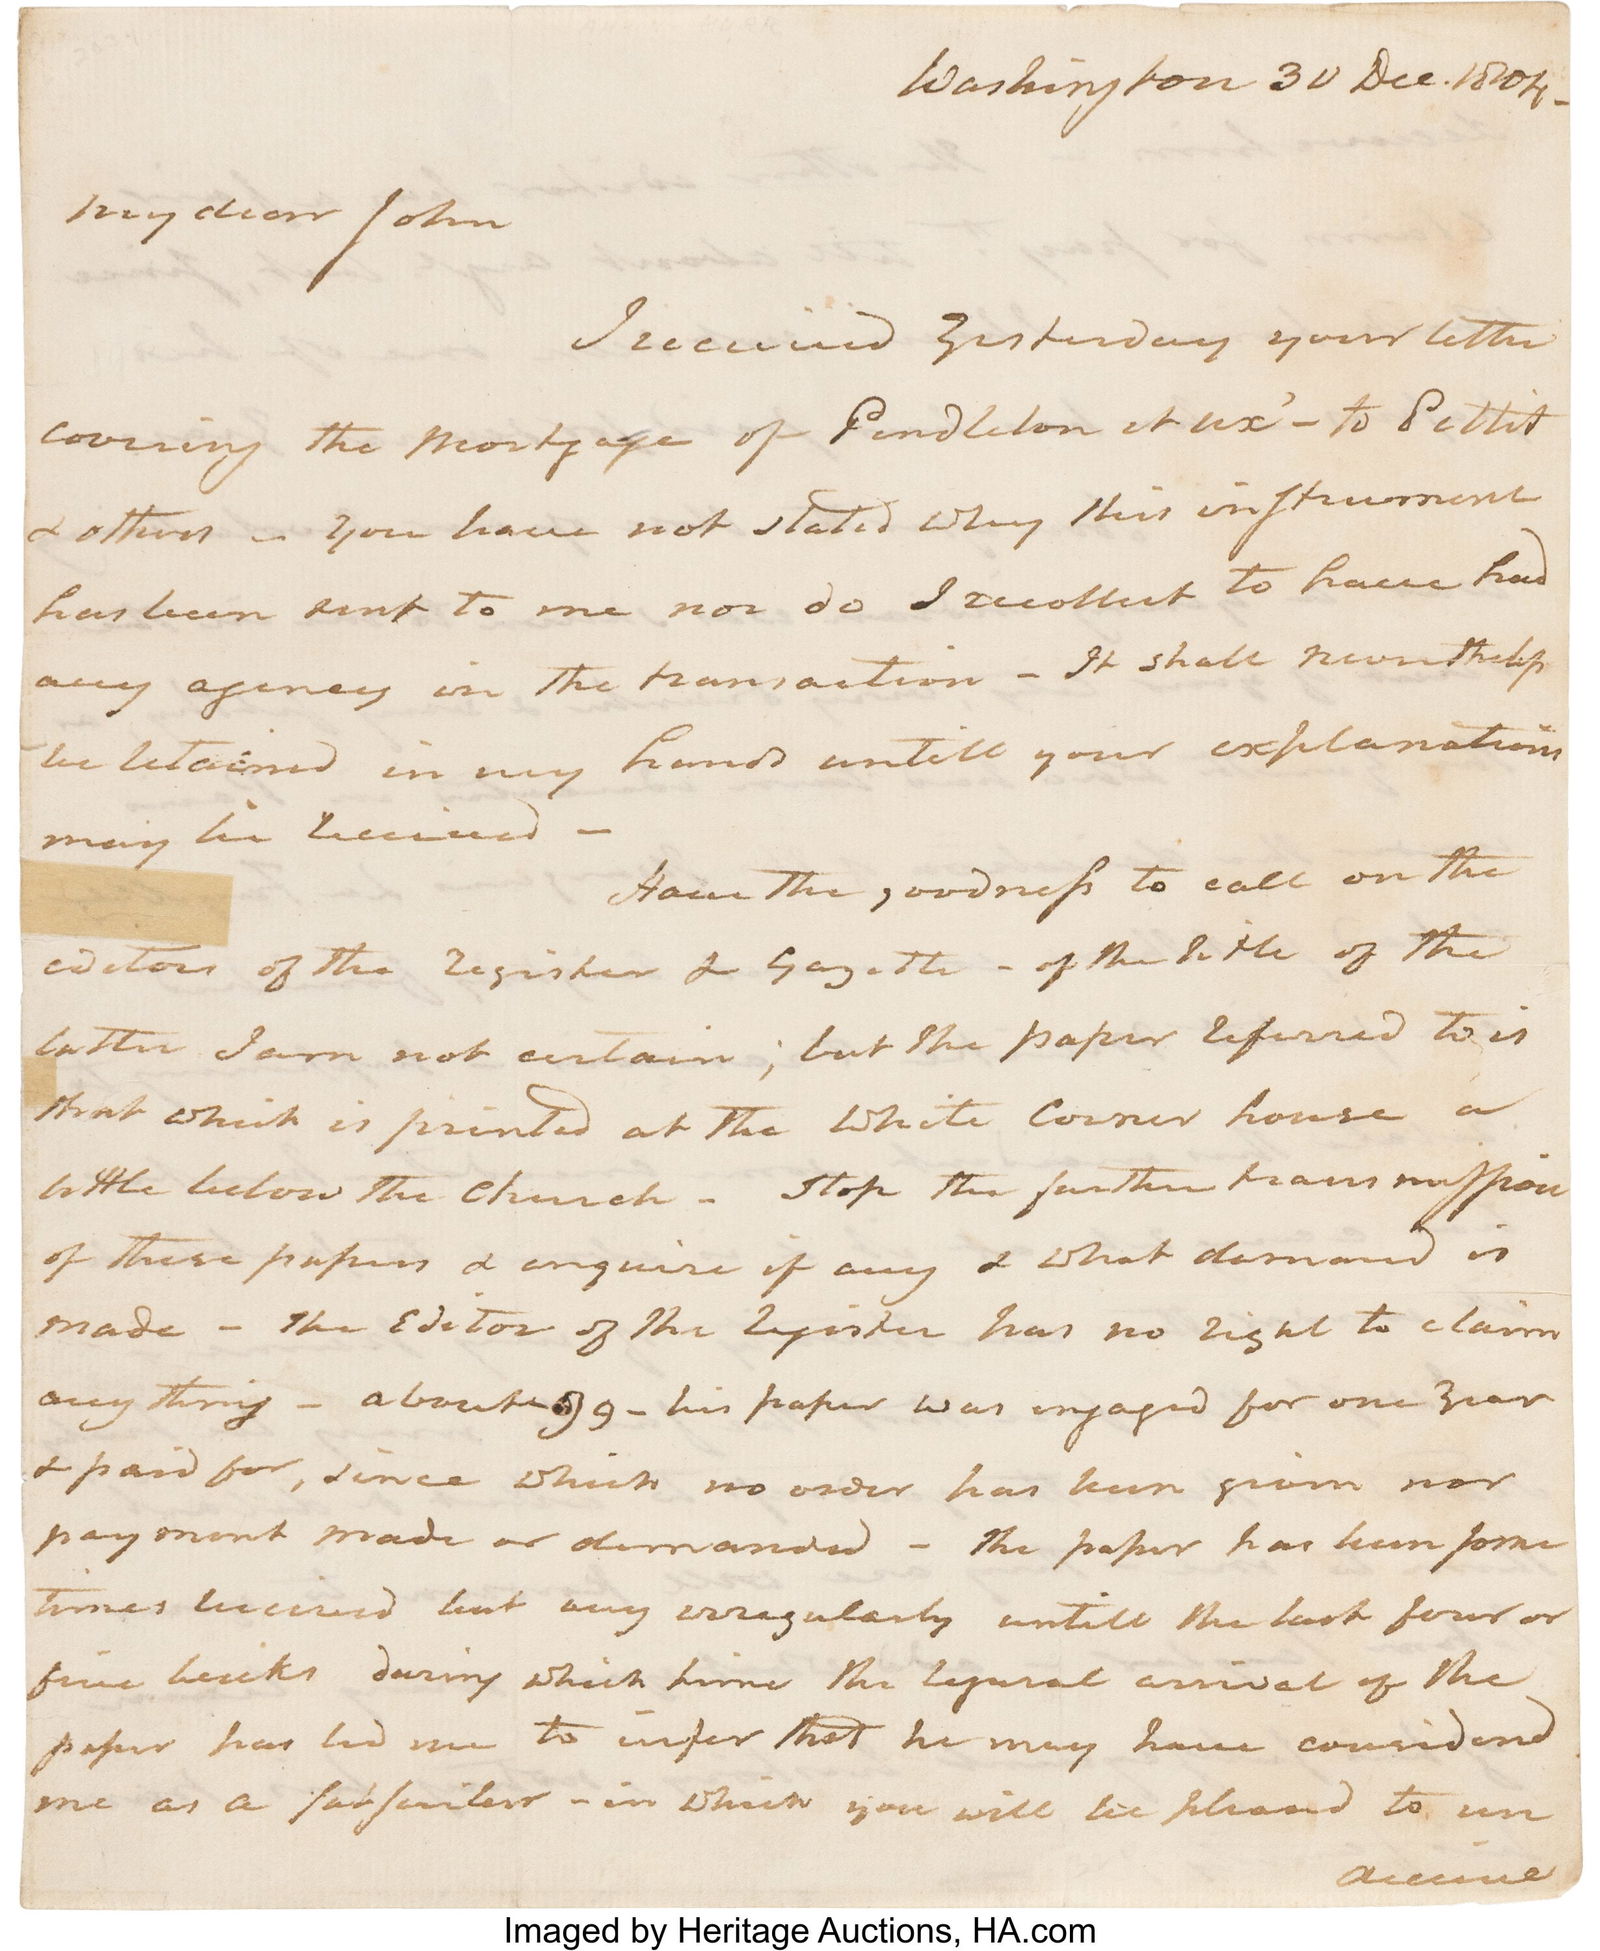 Washington 30 Dec. 1804 -
My dear John
I received Yesterday your letter
covering the Mortgage of Pendleton et ux' - to Pettit
& others - You have not stated why this instrument
has been sent to me nor do I recollect to have had
any agency in the transaction - It shall nevertheless
be retained in my hands untill your explanations
may be received -
Have the goodness to call on the
editors of the Register & Gazette - of the title of the
latter I am not certain; but the paper referred to is
that which is printed at the White Corner house a
little below the Church - Stop the further transmission
of these papers & enquire if any & what demand is
made - the Editor of the Register has no right to claim
any thing - about 99 - his paper was engaged for one Year
& paid for, since which no order has been given nor
payment made or demanded - the paper has been some
times received but very irregularly untill the last four or
five weeks during which time the regural arrival of the
paper has led me to infer that he may have considered
me as a subscriber - in which you will be pleased to un
deceive
Imaged by Heritage Auctions, HA.com